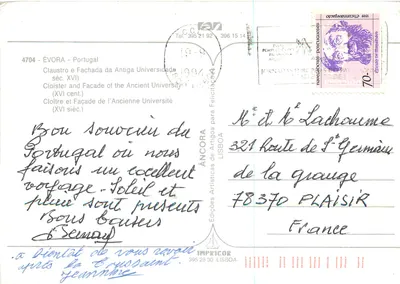 4704 - ÉVORA - Portugal
Claustro e Fachada da Antiga Universidade
(séc. XVI)
Cloister and Façade of the Ancient University
(XVI cent.)
Cloître et Façade de l'Ancienne Université
(XVI siéc.)
Bou souvenir du
Portugal où nous
faisons un excellent
voyage. Soleil et
pluie sont présents
Bons baisers
Bernard
à bientôt de vous revoir
après la Toussaint.
Jeannine
ÂNCORA
LISBOA
IMPRICOR
LISBOA
70-
Mr et Me Lachaume
321 Route de St Germain
de la grange
78370 PLAISIR
France